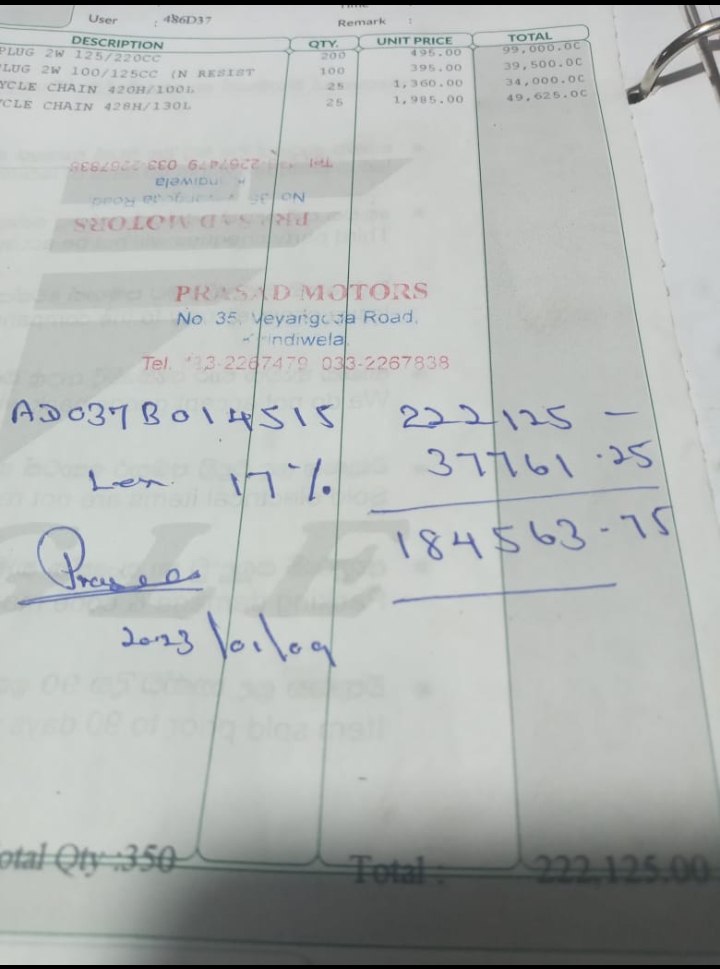 User : 486D37 Remark :
DESCRIPTION QTY. UNIT PRICE TOTAL
PLUG 2W 125/220CC 200 495.00 99,000.00
LUG 2W 100/125CC (N RESIST 100 395.00 39,500.00
YCLE CHAIN 420H/100L 25 1,360.00 34,000.00
YCLE CHAIN 428H/130L 25 1,985.00 49,625.00
PRASAD MOTORS
No 35, Veyangoda Road,
indiwela
Tel. 033-2267479 033-2267838
PRASAD MOTORS
No 35, Veyangoda Road,
indiwela.
Tel. 033-2267479 033-2267838
AD037B014515 222125 -
Les 17% 37761.25
184563-75
2023/01/09
otal Qty :350 Total : 222,125.00